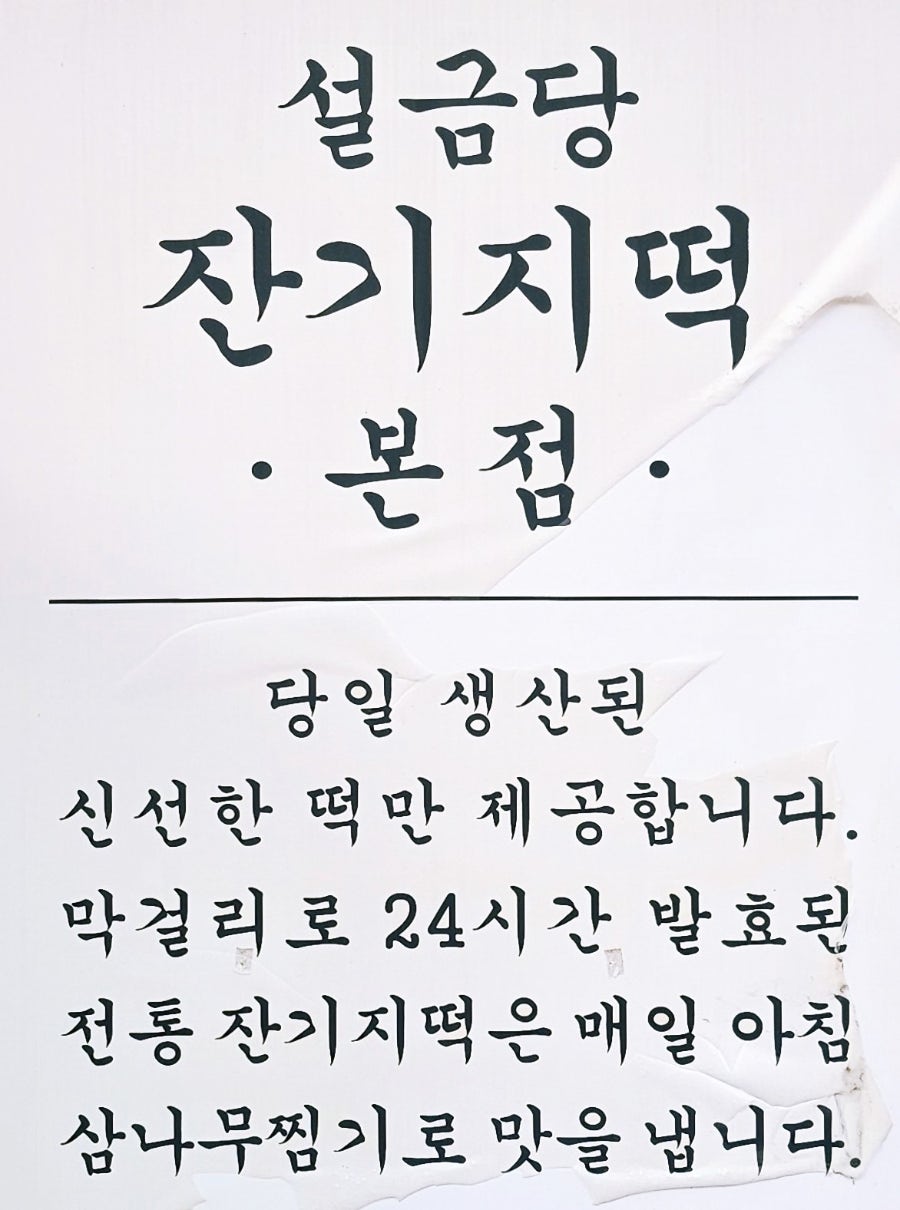 설금당
잔기지떡
· 본점 ·
당일 생산된
신선한 떡만 제공합니다.
막걸리로 24시간 발효된
전통 잔기지떡은 매일 아침
삼나무찜기로 맛을 냅니다.